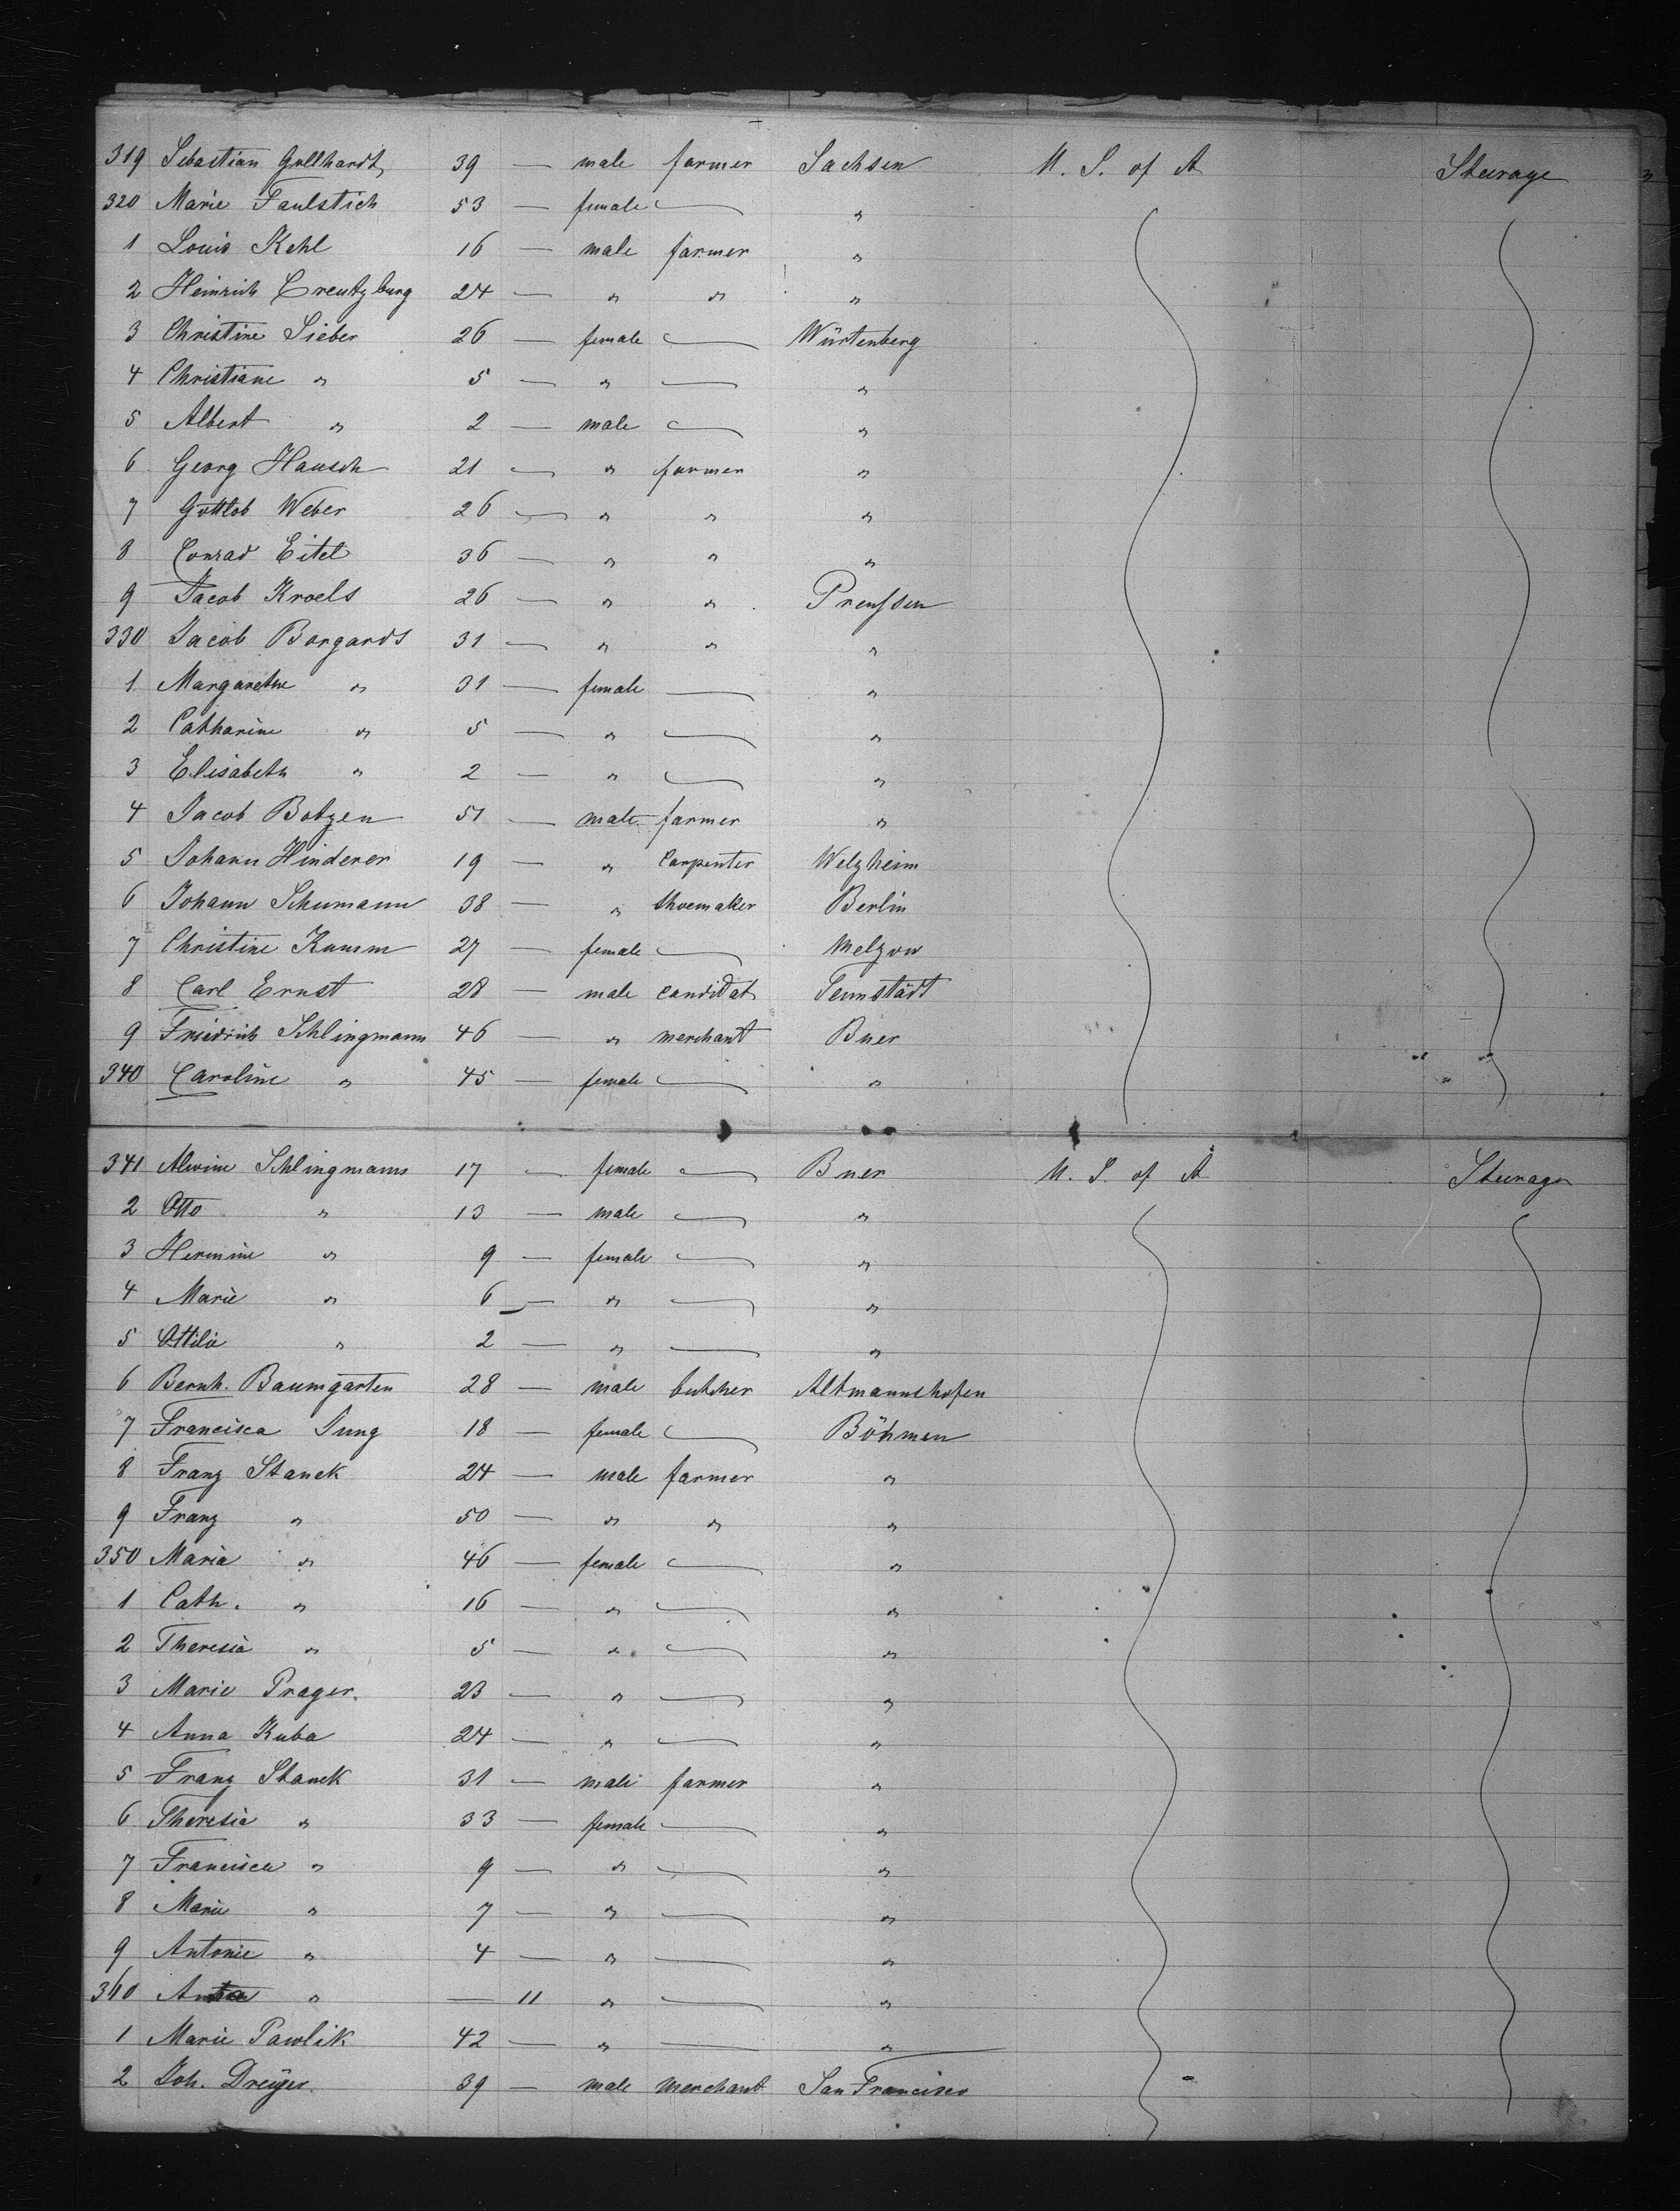 319 Sebastian Gollhardt 39 — male farmer Sachsen U. S. of A Steerage
320 Marie Faulstich 53 — female — "
1 Louis Kehl 16 — male farmer "
2 Heinrich Creutzburg 24 — " " "
3 Christine Sieber 26 — female — Würtenberg
4 Christiane " 5 — " — "
5 Albert " 2 — male — "
6 Georg Hausch 21 — " farmer "
7 Gottlob Weber 26 — " " "
8 Conrad Eitel 36 — " " "
9 Jacob Kroels 26 — " " Preussen
330 Jacob Borgards 31 — " " "
1 Margarethe " 31 — female — "
2 Catharine " 5 — " — "
3 Elisabeth " 2 — " — "
4 Jacob Botzen 51 — male farmer "
5 Johann Hinderer 19 — " Carpenter Welzheim
6 Johann Schumann 38 — " shoemaker Berlin
7 Christine Kumm 27 — female — Melzow
8 Carl Ernst 28 — male candidat Tennstädt
9 Friedrich Schlingmann 46 — " merchant Buer
340 Caroline " 45 — female — "
341 Alwine Schlingmann 17 — female — Buer U. S. of A Steerage
2 Otto " 13 — male — "
3 Hermine " 9 — female — "
4 Marie " 6 — " — "
5 Ottilie " 2 — " — "
6 Bernh. Baumgarten 28 — male butcher Altmannshofen
7 Francisca Jung 18 — female — Böhmen
8 Franz Stanek 24 — male farmer "
9 Franz " 50 — " " "
350 Maria " 46 — female — "
1 Cath. " 16 — " — "
2 Theresia " 5 — " — "
3 Marie Prager. 23 — " — "
4 Anna Kuba 24 — " — "
5 Franz Stanek 31 — male farmer "
6 Theresia " 33 — female — "
7 Francisca " 9 — " — "
8 Marie " 7 — " — "
9 Antonie " 4 — " — "
360 " — 11 " — "
1 Marie Pawlik 42 — " — "
2 Joh. Dreÿer. 39 — male merchant San Francisco